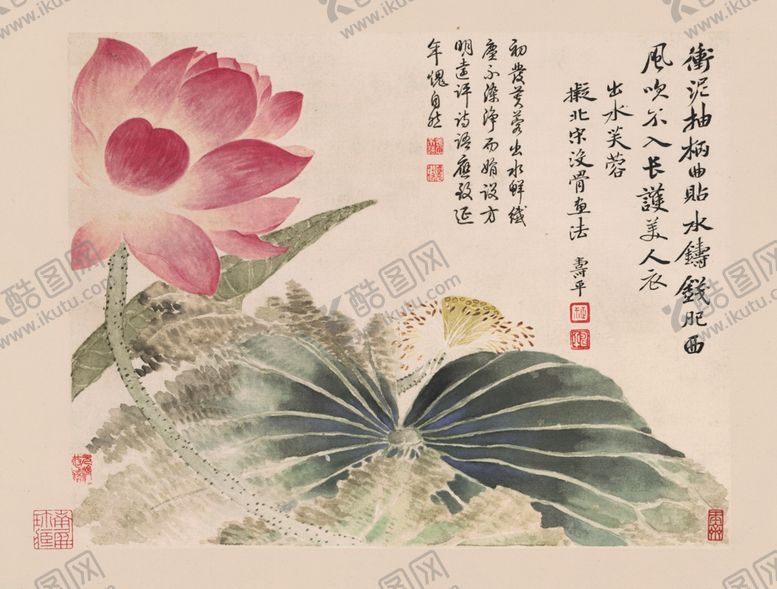 衝泥抽柄曲貼水鑄錢肥西
風吹不入長護美人衣
出水芙蓉
擬北宋沒骨画法 壽平
初發芙蓉出水鮮纖
塵不染淨而娟設方
明遠評詩語應教延
年愧自然
酷图网
www.ikutu.com